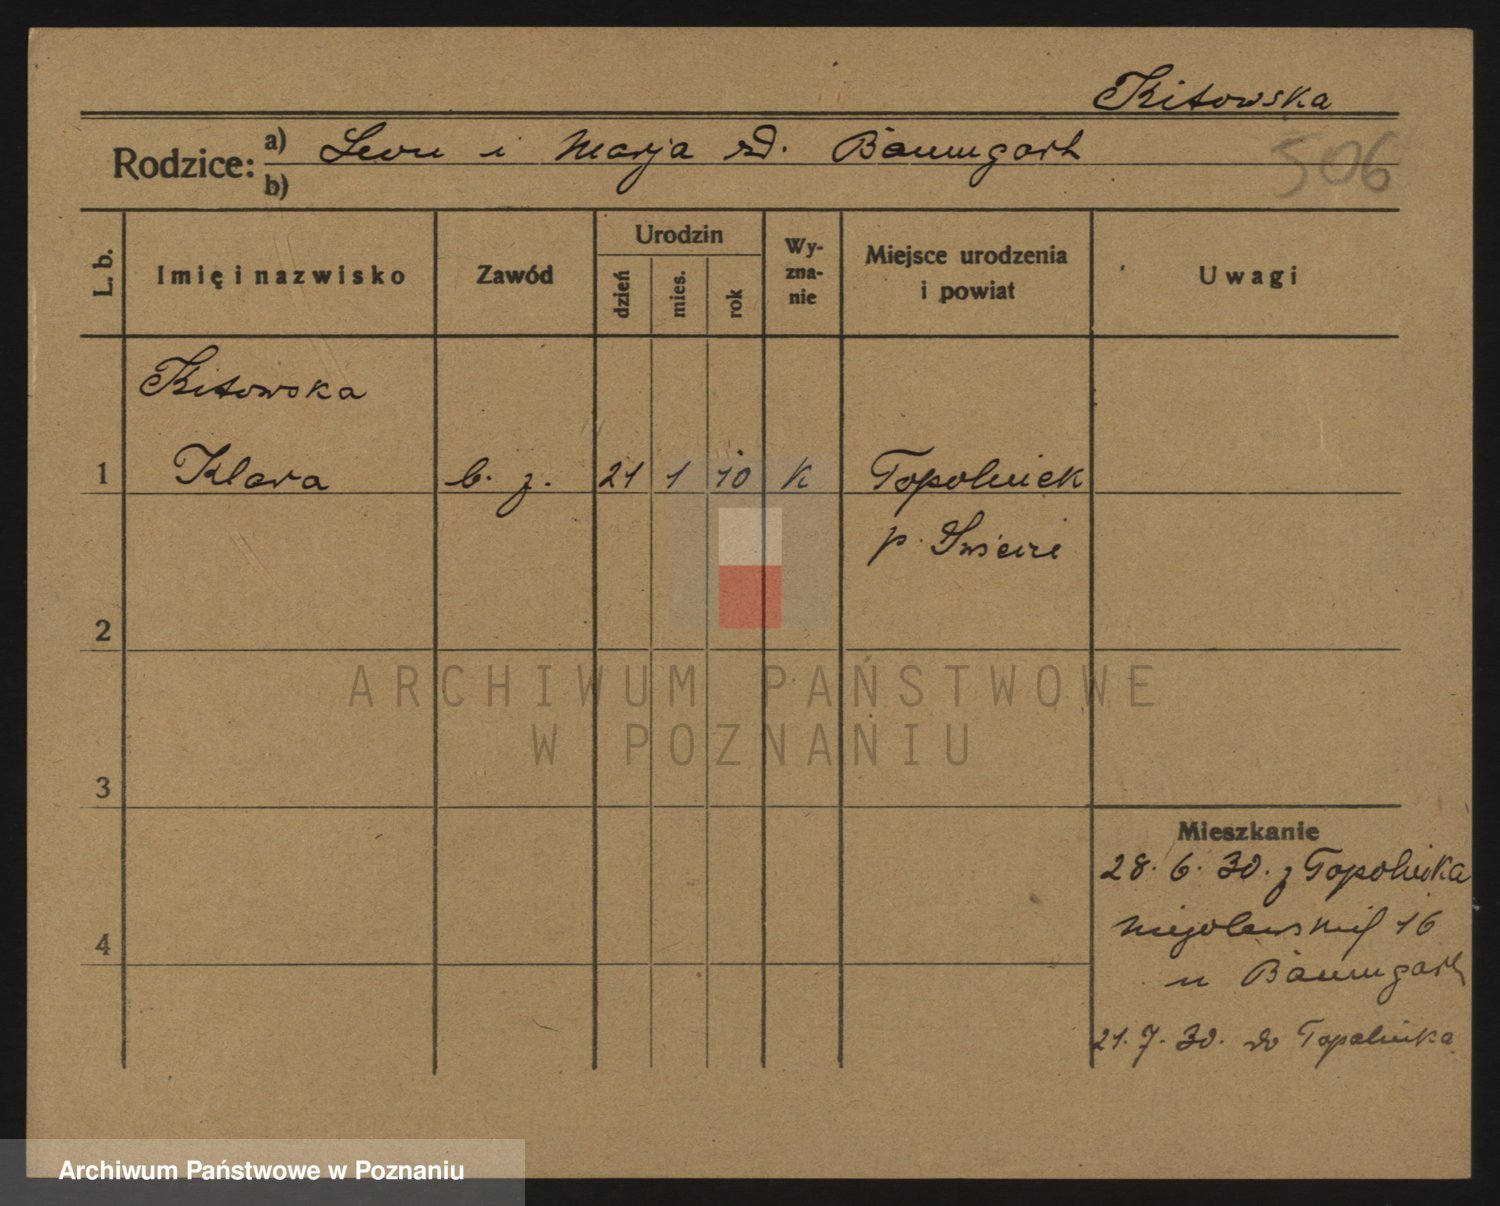 Kitowska
Rodzice: a) Leon i Marja zd. Baumgart
b)
506
L. b.
Imię i nazwisko
Zawód
Urodzin
dzień
mies.
rok
Wy-
zna-
nie
Miejsce urodzenia
i powiat
Uwagi
Kitowska
1 Klara b. z. 21 1 10 K Topolinek
p. Świecie
2
3
4
Mieszkanie
28. 6. 30. z Topolinka
Niegolewskich 16
u Baumgart
21. 7. 30. do Topolinka
ARCHIWUM PAŃSTWOWE
W POZNANIU
Archiwum Państwowe w Poznaniu